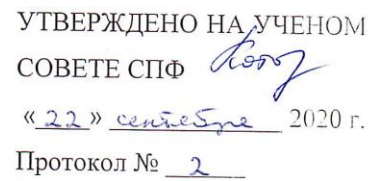 УТВЕРЖДЕНО НА УЧЕНОМ
СОВЕТЕ СПФ
«22» сентебре 2020 г.
Протокол № 2